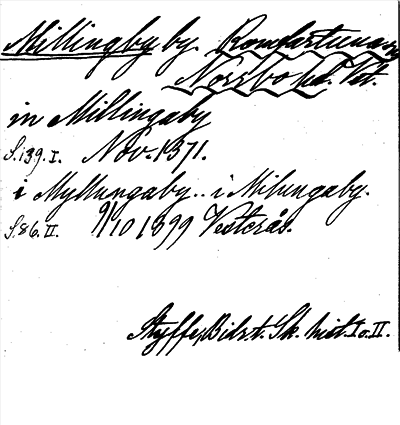 Millingby by. Romfartuna sn
Norrbo hd. Vstm.
in Millingaby
S. 139. I. Nov. 1371.
i Myllungaby.. i Milungaby.
S. 86. II. 9/10 1399 Vesterås.
Styffe, Bidr. t. Sk. hist. I o. II.